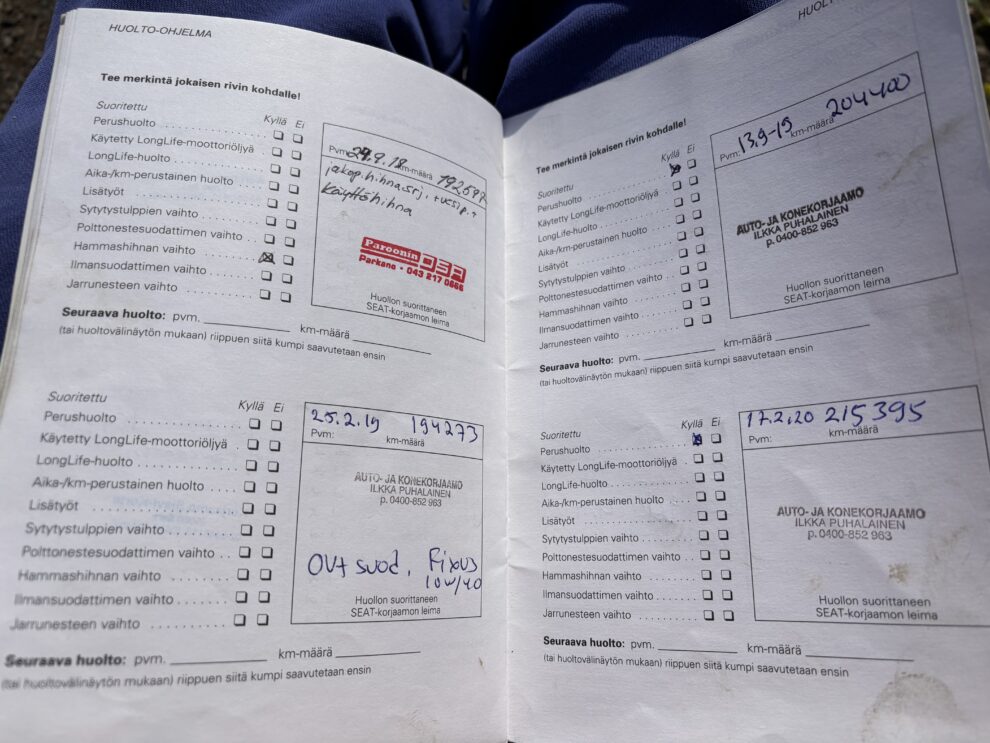 HUOLTO-OHJELMA
Tee merkintä jokaisen rivin kohdalle!
Suoritettu Kyllä Ei
Perushuolto
Käytetty LongLife-moottoriöljyä
LongLife-huolto
Aika-/km-perustainen huolto
Lisätyöt
Sytytystulppien vaihto
Polttonestesuodattimen vaihto
Hammashihnan vaihto
Ilmansuodattimen vaihto
Jarrunesteen vaihto
Pvm: .9.18 km-määrä
jakop.hihna srj. +
Käyttöhihna
Paroonin OSA
Parkano • 043 217 0666
Huollon suorittaneen
SEAT-korjaamon leima
Seuraava huolto: pvm. km-määrä
(tai huoltovälinäytön mukaan) riippuen siitä kumpi saavutetaan ensin
Suoritettu Kyllä Ei
Perushuolto
Käytetty LongLife-moottoriöljyä
LongLife-huolto
Aika-/km-perustainen huolto
Lisätyöt
Sytytystulppien vaihto
Polttonestesuodattimen vaihto
Hammashihnan vaihto
Ilmansuodattimen vaihto
Jarrunesteen vaihto
25.2.19 194273
Pvm: km-määrä
AUTO- JA KONEKORJAAMO
ILKKA PUHALAINEN
p. 0400-852 963
Öljyt suod. Fixus
10w/40
Huollon suorittaneen
SEAT-korjaamon leima
Seuraava huolto: pvm. km-määrä
(tai huoltovälinäytön mukaan) riippuen siitä kumpi saavutetaan ensin
Tee merkintä jokaisen rivin kohdalle!
Suoritettu Kyllä Ei
Perushuolto
Käytetty LongLife-moottoriöljyä
LongLife-huolto
Aika-/km-perustainen huolto
Lisätyöt
Sytytystulppien vaihto
Polttonestesuodattimen vaihto
Hammashihnan vaihto
Ilmansuodattimen vaihto
Jarrunesteen vaihto
Pvm: 13.9-19 km-määrä 204400
AUTO- JA KONEKORJAAMO
ILKKA PUHALAINEN
p. 0400-852 963
Huollon suorittaneen
SEAT-korjaamon leima
Seuraava huolto: pvm. km-määrä
(tai huoltovälinäytön mukaan) riippuen siitä kumpi saavutetaan ensin
Suoritettu Kyllä Ei
Perushuolto
Käytetty LongLife-moottoriöljyä
LongLife-huolto
Aika-/km-perustainen huolto
Lisätyöt
Sytytystulppien vaihto
Polttonestesuodattimen vaihto
Hammashihnan vaihto
Ilmansuodattimen vaihto
Jarrunesteen vaihto
17.2.20 215395
Pvm: km-määrä
AUTO- JA KONEKORJAAMO
ILKKA PUHALAINEN
p. 0400-852 963
Huollon suorittaneen
SEAT-korjaamon leima
Seuraava huolto: pvm. km-määrä
(tai huoltovälinäytön mukaan) riippuen siitä kumpi saavutetaan ensin